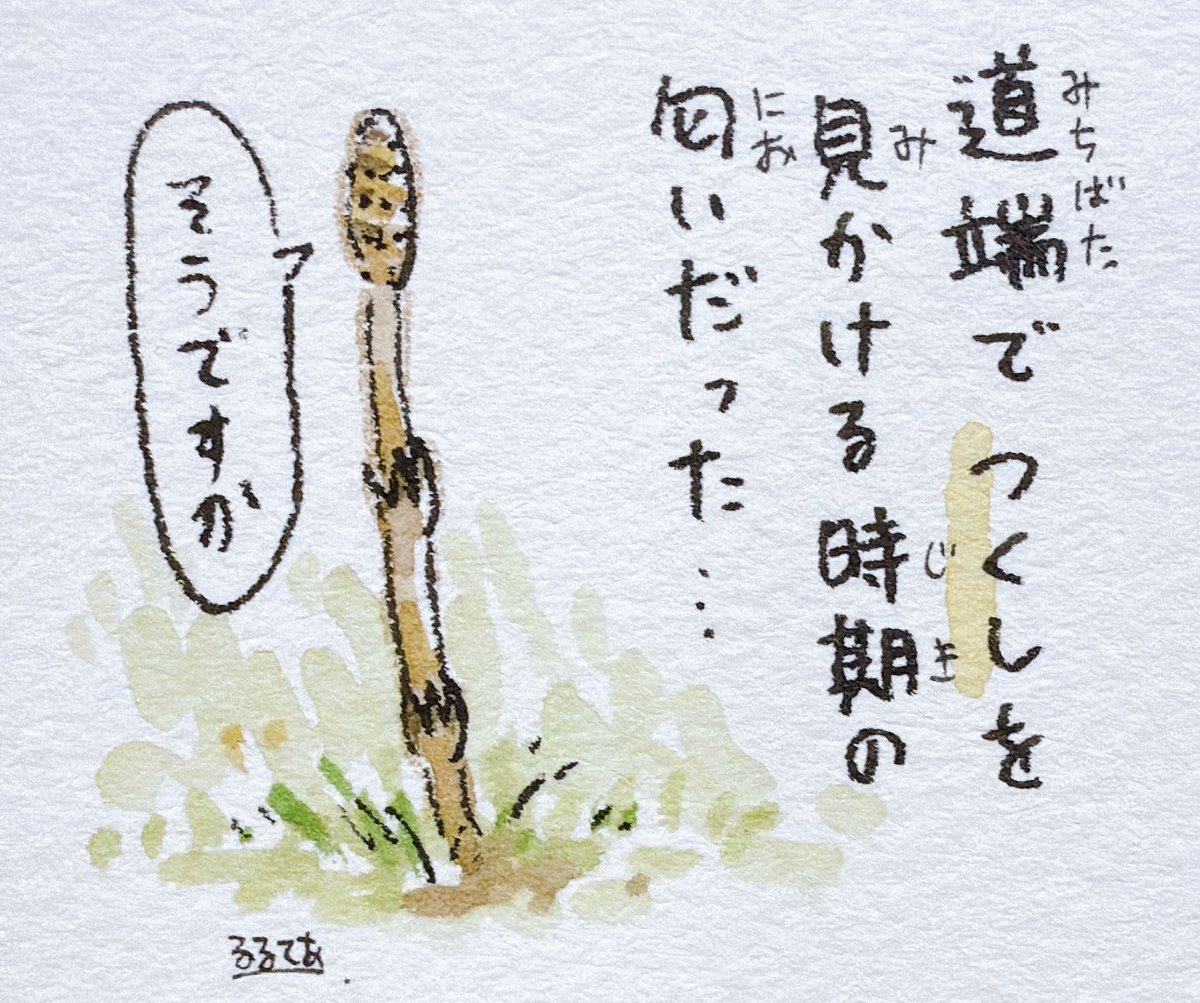 道端でつくしを
みちばた
見かける時期の
み
じき
匂いだった…
にお
そうですか
るるてあ